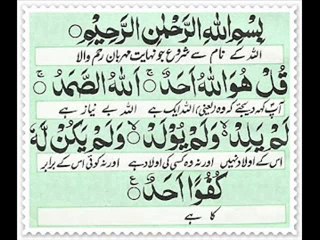 بِسْمِ اللّٰهِ الرَّحْمٰنِ الرَّحِيْمِ
اللہ کے نام سے شروع جو نہایت مہربان رحم والا
قُلْ هُوَ اللّٰهُ اَحَدٌ ۚ اَللّٰهُ الصَّمَدُ ۚ
آپ کہہ دیجئے کہ وہ (یعنی) اللہ ایک ہے اللہ بے نیاز ہے
لَمْ يَلِدْ ۙ وَلَمْ يُوْلَدْ ۙ وَلَمْ يَكُنْ لَّهٗ
اس کے اولاد نہیں اور نہ وہ کسی کی اولاد ہے اور نہ کوئی اس کے برابر
كُفُوًا اَحَدٌ
کا ہے